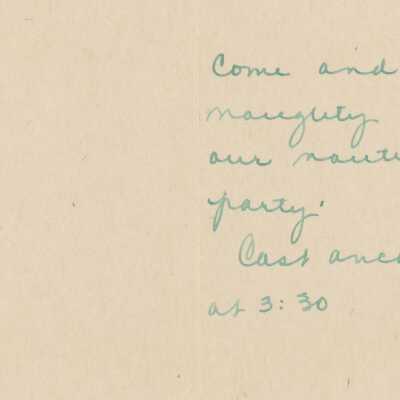 Come and
naughty
our nauti
party.
Cast anch
at 3:30